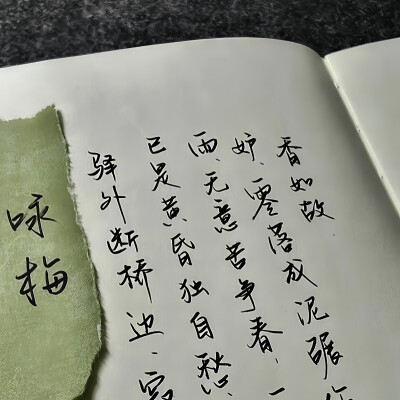 咏梅
驿外断桥边、
已是黄昏独自愁
雨、无意苦争春，一
妒、零落成泥碾
香如故